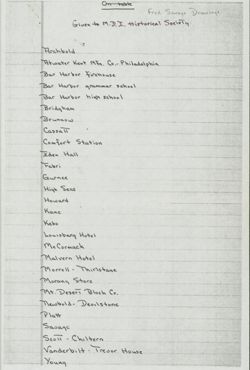 On-table
Fred Savage Drawings
Given to M.D.I. Historical Society
Archbold
Atwater Kent Mfg. Co.- Philadelphia
Bar Harbor Firehouse
Bar Harbor grammar school
Bar Harbor high school
Bridgham
Brunnow
Cassatt
Comfort Station
Eden Hall
Fabri
Gurnee
High Seas
Howard
Kane
Kebo
Louisburg Hotel
McCormack
Malvern Hotel
Morrell - Thirlstane
Morang Store
Mt. Desert Block Co.
Newbold - Devilstone
Platt
Savage
Scott - Chiltern
Vanderbilt - Trevor House
Young